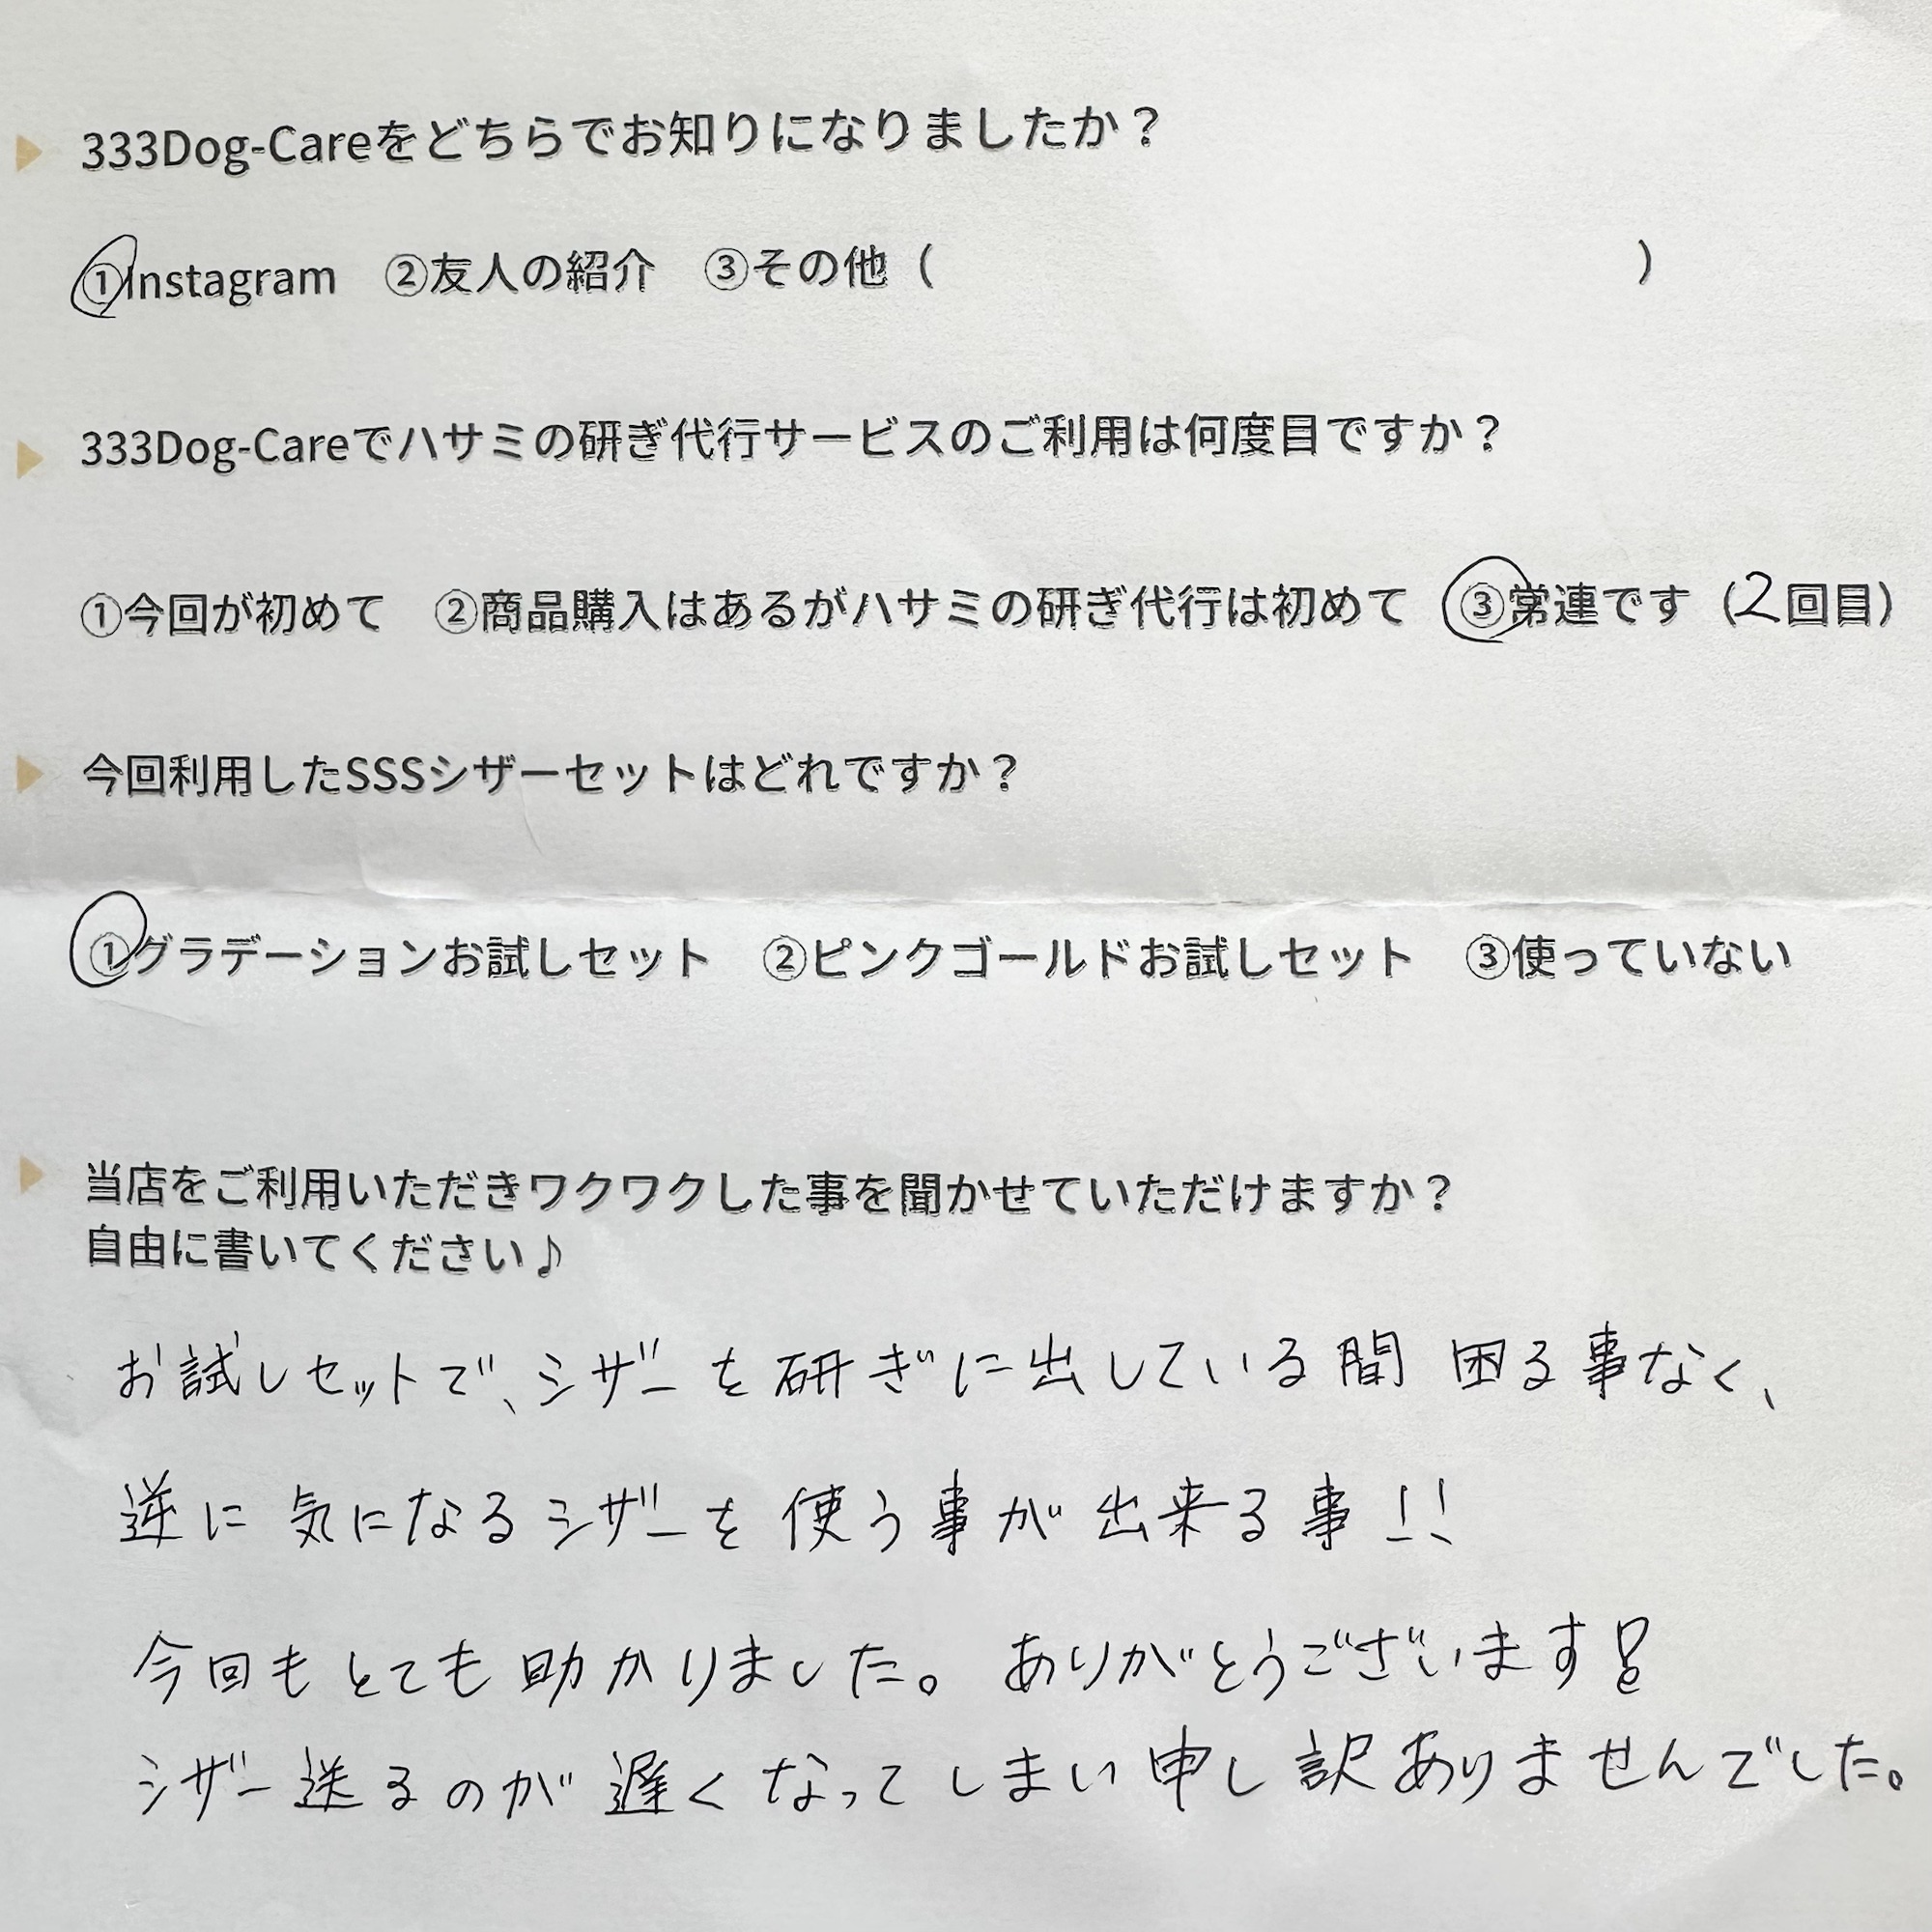 333Dog-Careをどちらでお知りになりましたか？
①Instagram　②友人の紹介　③その他（　　　　　　　　　　　　　　　）
333Dog-Careでハサミの研ぎ代行サービスのご利用は何度目ですか？
①今回が初めて　②商品購入はあるがハサミの研ぎ代行は初めて　③常連です（2回目）
今回利用したSSSシザーセットはどれですか？
①グラデーションお試しセット　②ピンクゴールドお試しセット　③使っていない
当店をご利用いただきワクワクした事を聞かせていただけますか？
自由に書いてください♪
お試しセットで、シザーを研ぎに出している間 困る事なく、
逆に気になるシザーを使う事が出来る事!!
今回もとても助かりました。ありがとうございます!
シザー送るのが遅くなってしまい申し訳ありませんでした。